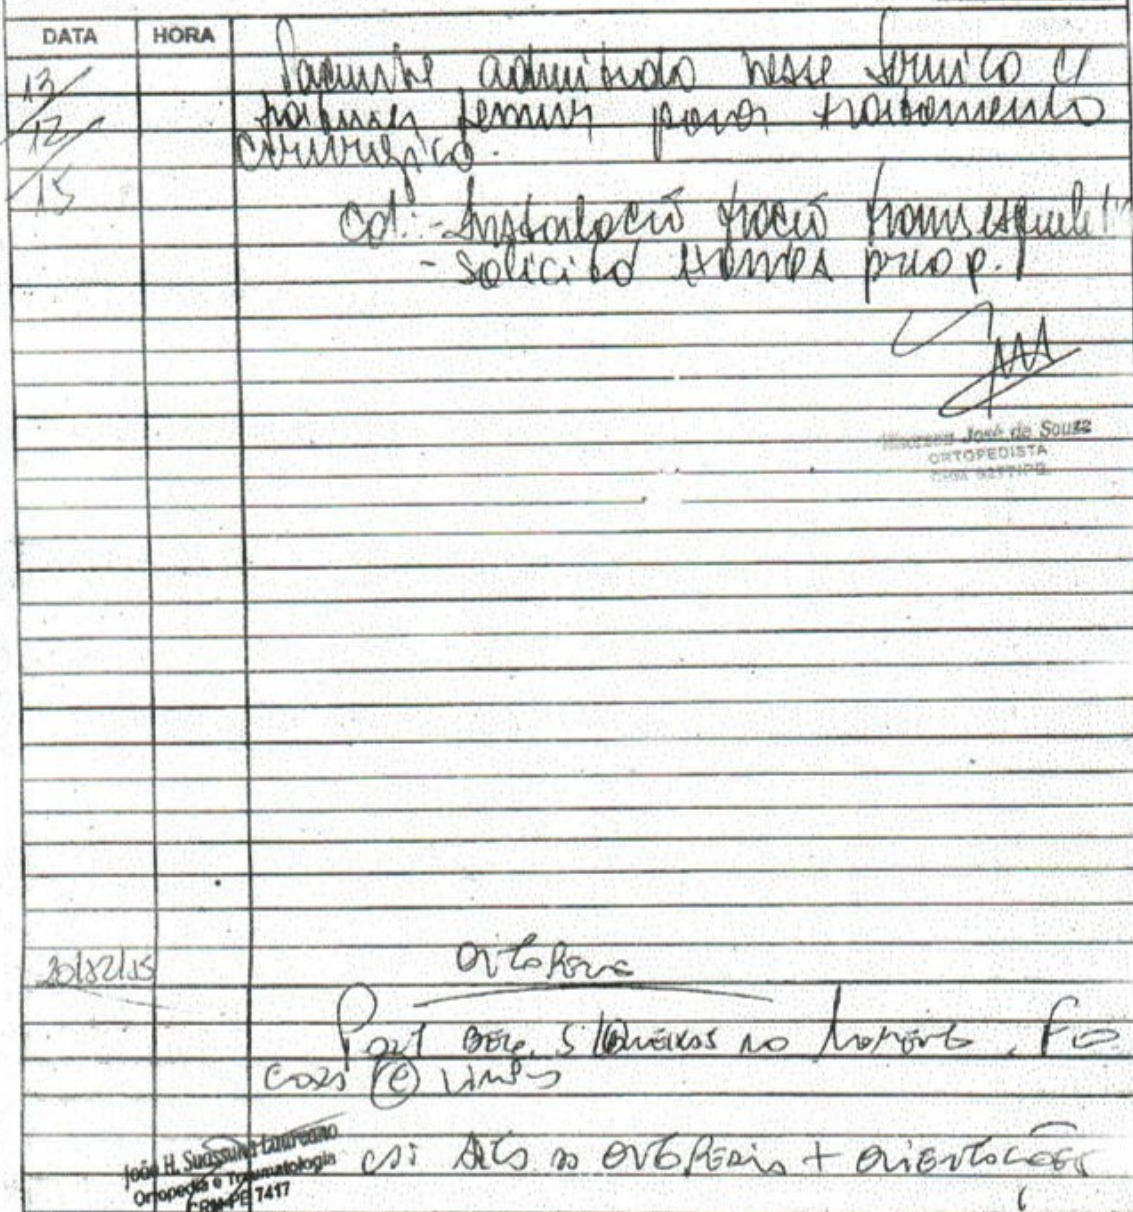 DATA HORA
13/ Paciente admitido nesse serviço c/
12/ fratura femur para tratamento
15 cirurgico.
cd: - Instalació tració transesquelet
- solicitó exames pre op.
José de Souza
ORTOPEDISTA
20/12/15 ortopedia
Pact bem, s/ queixas no momento. F.O
limpa
cd: Alta da ortopedia + orientações
João H. Suassuna Laureano
Ortopedia e Traumatologia
CRM-PE 7417